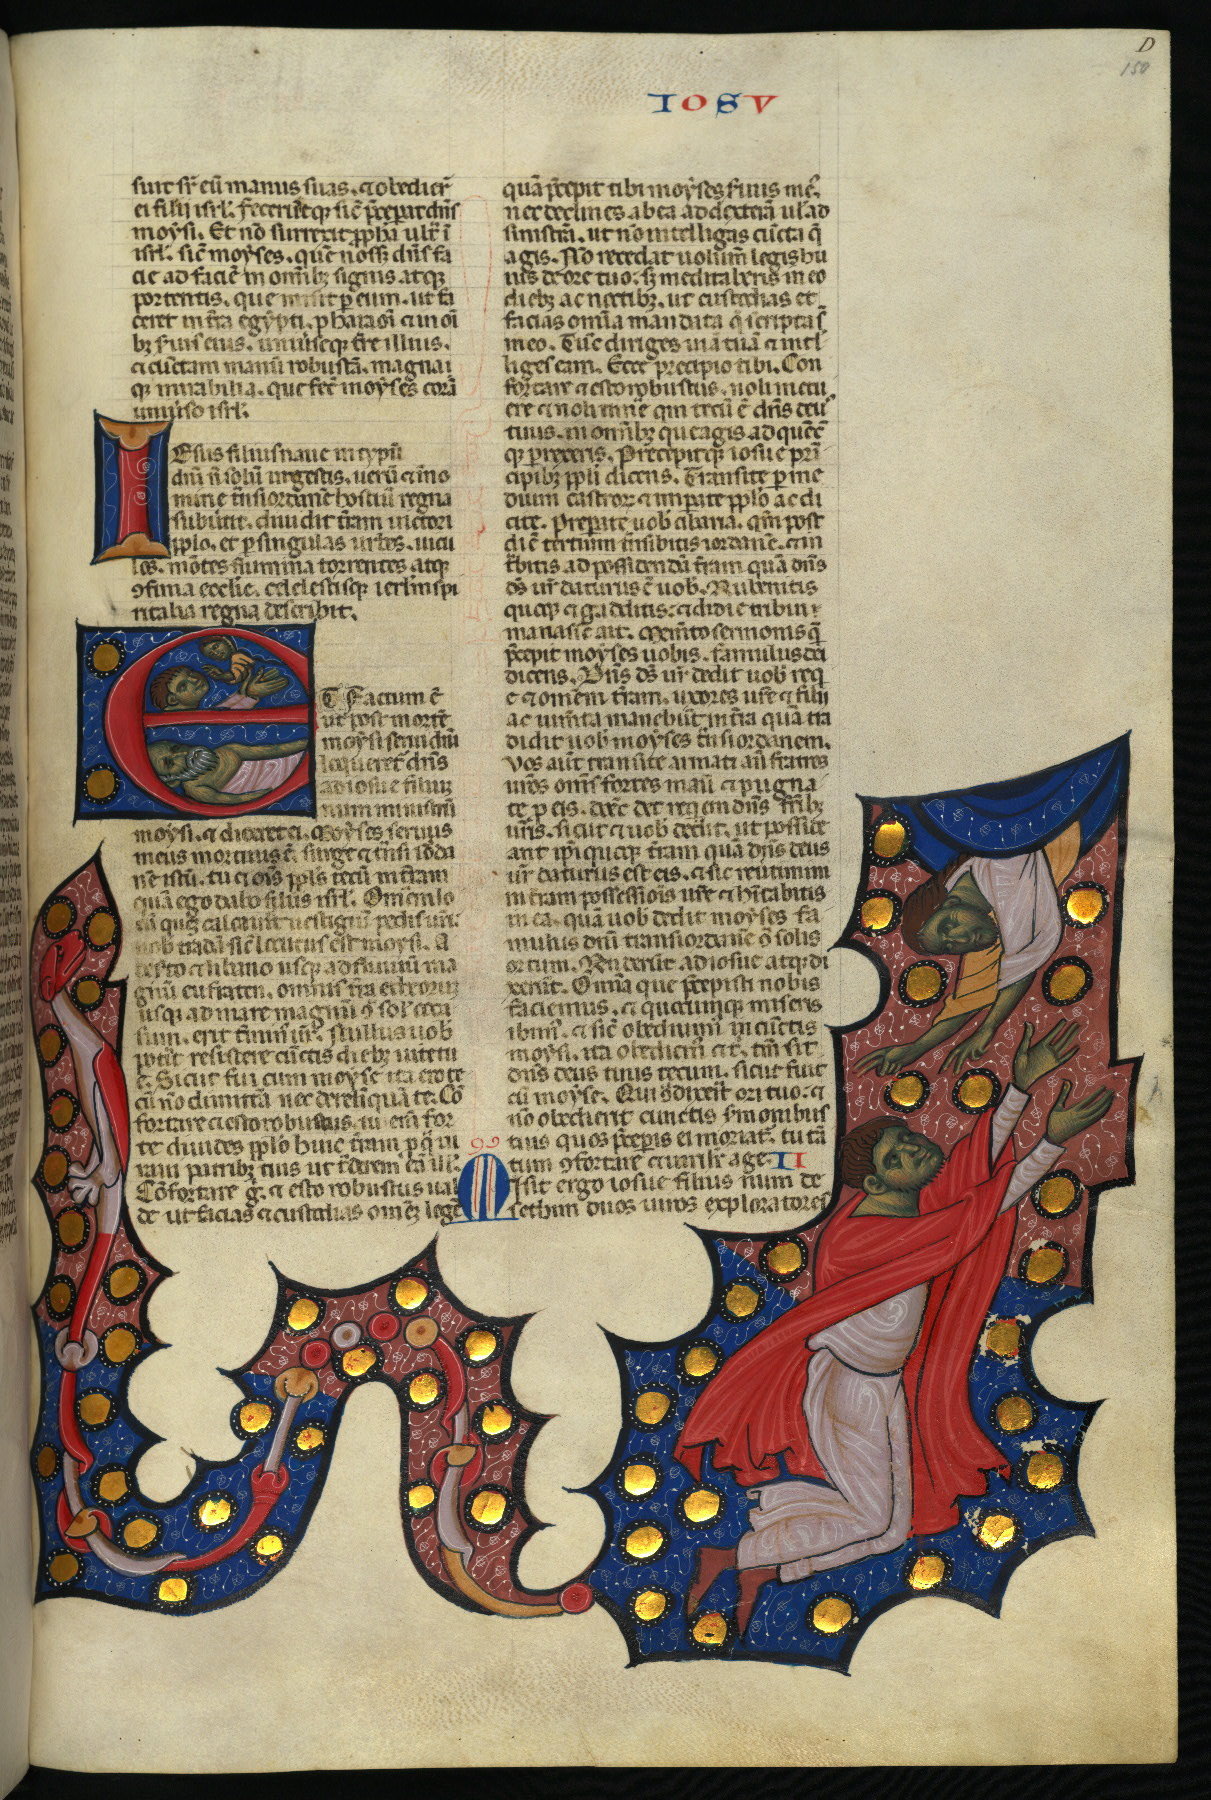 D
150
IOSV
suit sr̄ eū manus suas. ⁊ obedier̄
ei filij isrl̄. feceruntqꝫ sič p̄ceperat dn̄s
moysi. Et nō surrexit ꝓph̄a ult̄ i
isrl̄. sič moyses. quē noss; dn̄s fa
cie ad faciē in om̄ibꝫ signis atqꝫ
portentis. que misit ꝑ eum. ut fa
ceret in t̄ra egypti. pharaoī ⁊ in oī
bꝫ suis eius. uniūseqꝫ t̄re illius.
⁊ cūctam manū robustā. magnai
qꝫ mirabilia. que fec̄ moyses corā
uniūso isrl̄.
IEsus filius naue in typū
dn̄i n̄ solū in gestis. uerū ⁊ ī no
mine t̄nsi iordanē hostiū regna
subūtit. diuidit t̄ram uictori
pplo. et ꝑ singulas urbes. uicu
los. mōtes flumina torrentes atqꝫ
ꝯfinia ecclīe. celestisqꝫ ierl̄m spi
ritalia regna describit.
ET Factum ē
ut post mortē
moysi serui dn̄i
loqueret̄ dn̄s
ad iosue filium
num ministrū
moysi. ⁊ diceret ei. Moyses seruus
meus mortuus ē. surge ⁊ t̄nsi iorda
nē istū. tu ⁊ oīs ppl̄s tecū in t̄ram
quā ego dabo filiis isrl̄. Om̄em lo
cū quē calcauit uestigiū pedis ur̄i.
uob̄ tradā sič locutus est moysi. A
deserto ⁊ libano usqꝫ ad fluuiū ma
gnū eufraten. omnis t̄ra etheorum
usqꝫ ad mare magnū ꝯ̄ sol̄ occa
sum. erit t̄minꝰ ur̄. Nullus uob̄
potit̄ resistere cūctis diebꝫ uite tu
e. Sicut fui cum moyse ita ero te
cū nō dimittā nec derelinquā te. Cō
fortare ⁊ esto robustus. tu eni for
te diuides pplo huic t̄ram ꝓ q̄ iu
raui patribꝫ tuis ut t̄derem eā ill̄.
Confortare g̊. ⁊ esto robustus ual
de ut facias ⁊ custodias om̄eꝫ legē
quā p̄cepit tibi moyses seruus meꝰ.
nec declines ab ea ad dexterā ul̄ ad
sinistrā. ut nō intelligas cūcta q̄
agis. Nō recedat uolum̄ legis hu
ius de ore tuo. sꝫ meditaberis in eo
diebꝫ ac noctibꝫ. ut custodias et
facias om̄ia mandata q̄ scripta sūt
in eo. Tūc diriges uiā tuā ⁊ intel
liges eam. Ecce precipio tibi. Con
fortare ⁊ esto robustus. noli metu
ere ⁊ noli tim̄e qm̄ tecū ē dn̄s deus
tuus. in om̄ibꝫ que agis ad quecū
qꝫ prexeris. Precepitqꝫ iosue prī
cipibꝫ ppl̄i dicens. Transite ꝑ me
dium castrorꝫ ⁊ imperate pplo ac di
cite. Preperate uob̄ cibaria. qm̄ post
diē tertium t̄nsibitis iordanē. ⁊ in
t̄bitis ad possidendū t̄ram quā dn̄s
ds̄ ur̄ daturus ē uob̄. Rubenitis
quoqꝫ ⁊ gadditis. ⁊ dimidie tribui
manasse ait. Mem̄to sermonis q̄
p̄cepit moyses uobis. famulus dei
dicens. Dn̄s ds̄ ur̄ dedit uob̄ req
e ⁊ om̄em t̄ram. uxores ur̄e ⁊ filii
ac ium̄ta manebūt in t̄ra quā tra
didit uob̄ moyses t̄ns iordanem.
Vos aut̄ transite armati an̄ fratres
ur̄os om̄s fortes manu ⁊ pugna
te ꝓ eis. donec det reqem dn̄s fr̄ibꝫ
ur̄is. sicut ⁊ uob̄ dedit. ut posside
ant ip̄i quoqꝫ t̄ram quā dn̄s deus
ur̄ daturus est eis. ⁊ sic reūtimini
in t̄ram possessiois ur̄e ⁊ hītabitis
in ea. quā uob̄ dedit moyses fa
mulus dn̄i trans iordanē ꝯ̄ solis
ortum. Rn̄derūt ad iosue atqꝫ di
xerūt. Om̄ia que p̄cepisti nobis
faciemus. ⁊ quocumqꝫ miseris
ibimꝰ. ⁊ sič obediuimꝰ in cūctis
moysi. ita obediemꝰ ⁊ t̄. tm̄ sit
dn̄s deus tuus tecum. sicut fuit
cū moyse. Qui ꝯdixerit ori tuo. ⁊
nō obedierit cunctis sermonibus
tuis quos p̄ceperis ei moriat̄. tu tā
tum ꝯfortare ⁊ uiriliꝉ age. II
Misit ergo iosue filius num de
sethim duos uiros exploratores